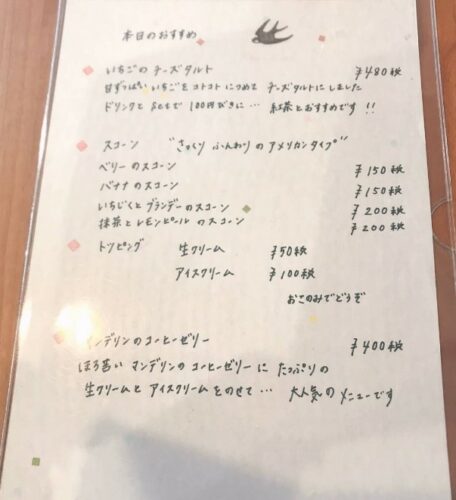 本日のおすすめ
いちごの チーズタルト ¥480税
甘ずっぱいいちごを コトコト につめて チーズタルトにしました
ドリンクと Setで 100円びきに… 紅茶とおすすめです !!
スコーン "さっくり ふんわりの アメリカンタイプ"
ベリーのスコーン ¥150税
バナナのスコーン ¥150税
いちじくとブランデーのスコーン ¥200税
抹茶とレモンピールのスコーン ¥200税
トッピング 生クリーム ¥50税
アイスクリーム ¥100税
おこのみでどうぞ
ンデリンのコーヒーゼリー ¥400税
ほろ苦い マンデリンの コーヒーゼリーに たっぷりの
生クリームと アイスクリームをのせて… 大人気の メニューです